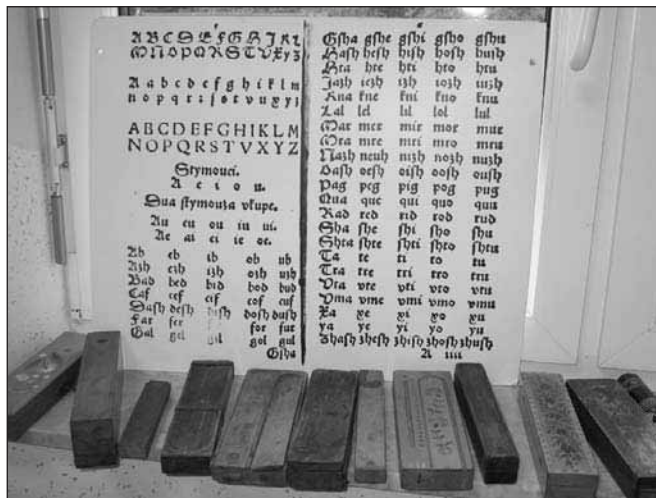 A B C D E F G H I K L
M N O P Q R S T V X y z
A a b c d e f g h i k l m
n o p q r z ſ s t v u x y z
A B C D E F G H I K L M
N O P Q R S T V X Y Z
Stymouci.
A e i o u.
Dua ſtymouza vkupe.
Au eu ou iu ui.
Ae ai ei ie oe.
Ab eb ib ob ub
Azh ezh izh ozh uzh
Bad bed bid bod bud
Caf cef cif cof cuf
Daſh deſh diſh doſh duſh
Far fer for fur
Gal gel gil gol gul
Gſha
Gſha gſhe gſhi gſho gſhu
Haſh heſh hiſh hoſh huſh
Hra hre hri hro hru
Jazh iezh izh iozh iuzh
Kna kne kni kno knu
Lal lel lil lol lul
Mar mer mir mor mur
Mra mre mri mro mru
Nazh neuh nizh nozh nuzh
Oaſh oeſh oiſh ooſh ouſh
Pag peg pig pog pug
Qua que qui quo quu
Rad red rid rod rud
Sha ſhe ſhi ſho ſhu
Shta ſhte ſhti ſhto ſhtu
Ta te ti to tu
Tra tre tri tro tru
Vra vre vri vro vru
Vma vme vmi vmo vmu
Xa xe xi xo xu
ya ye yi yo yu
Zhaſh zheſh zhiſh zhoſh zhuſh
A iiij